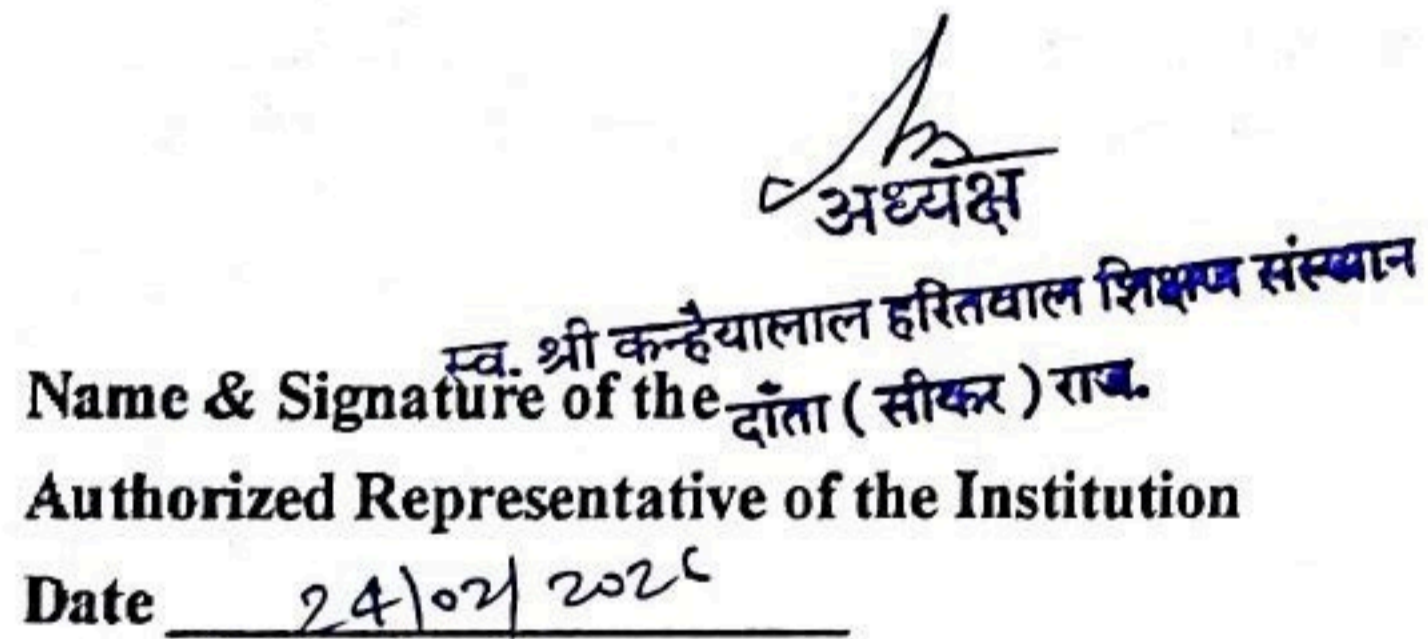 अध्यक्ष
स्व. श्री कन्हैयालाल हरितवाल शिक्षण संस्थान
Name & Signature of the दाँता ( सीकर ) राज.
Authorized Representative of the Institution
Date 24/02/2026